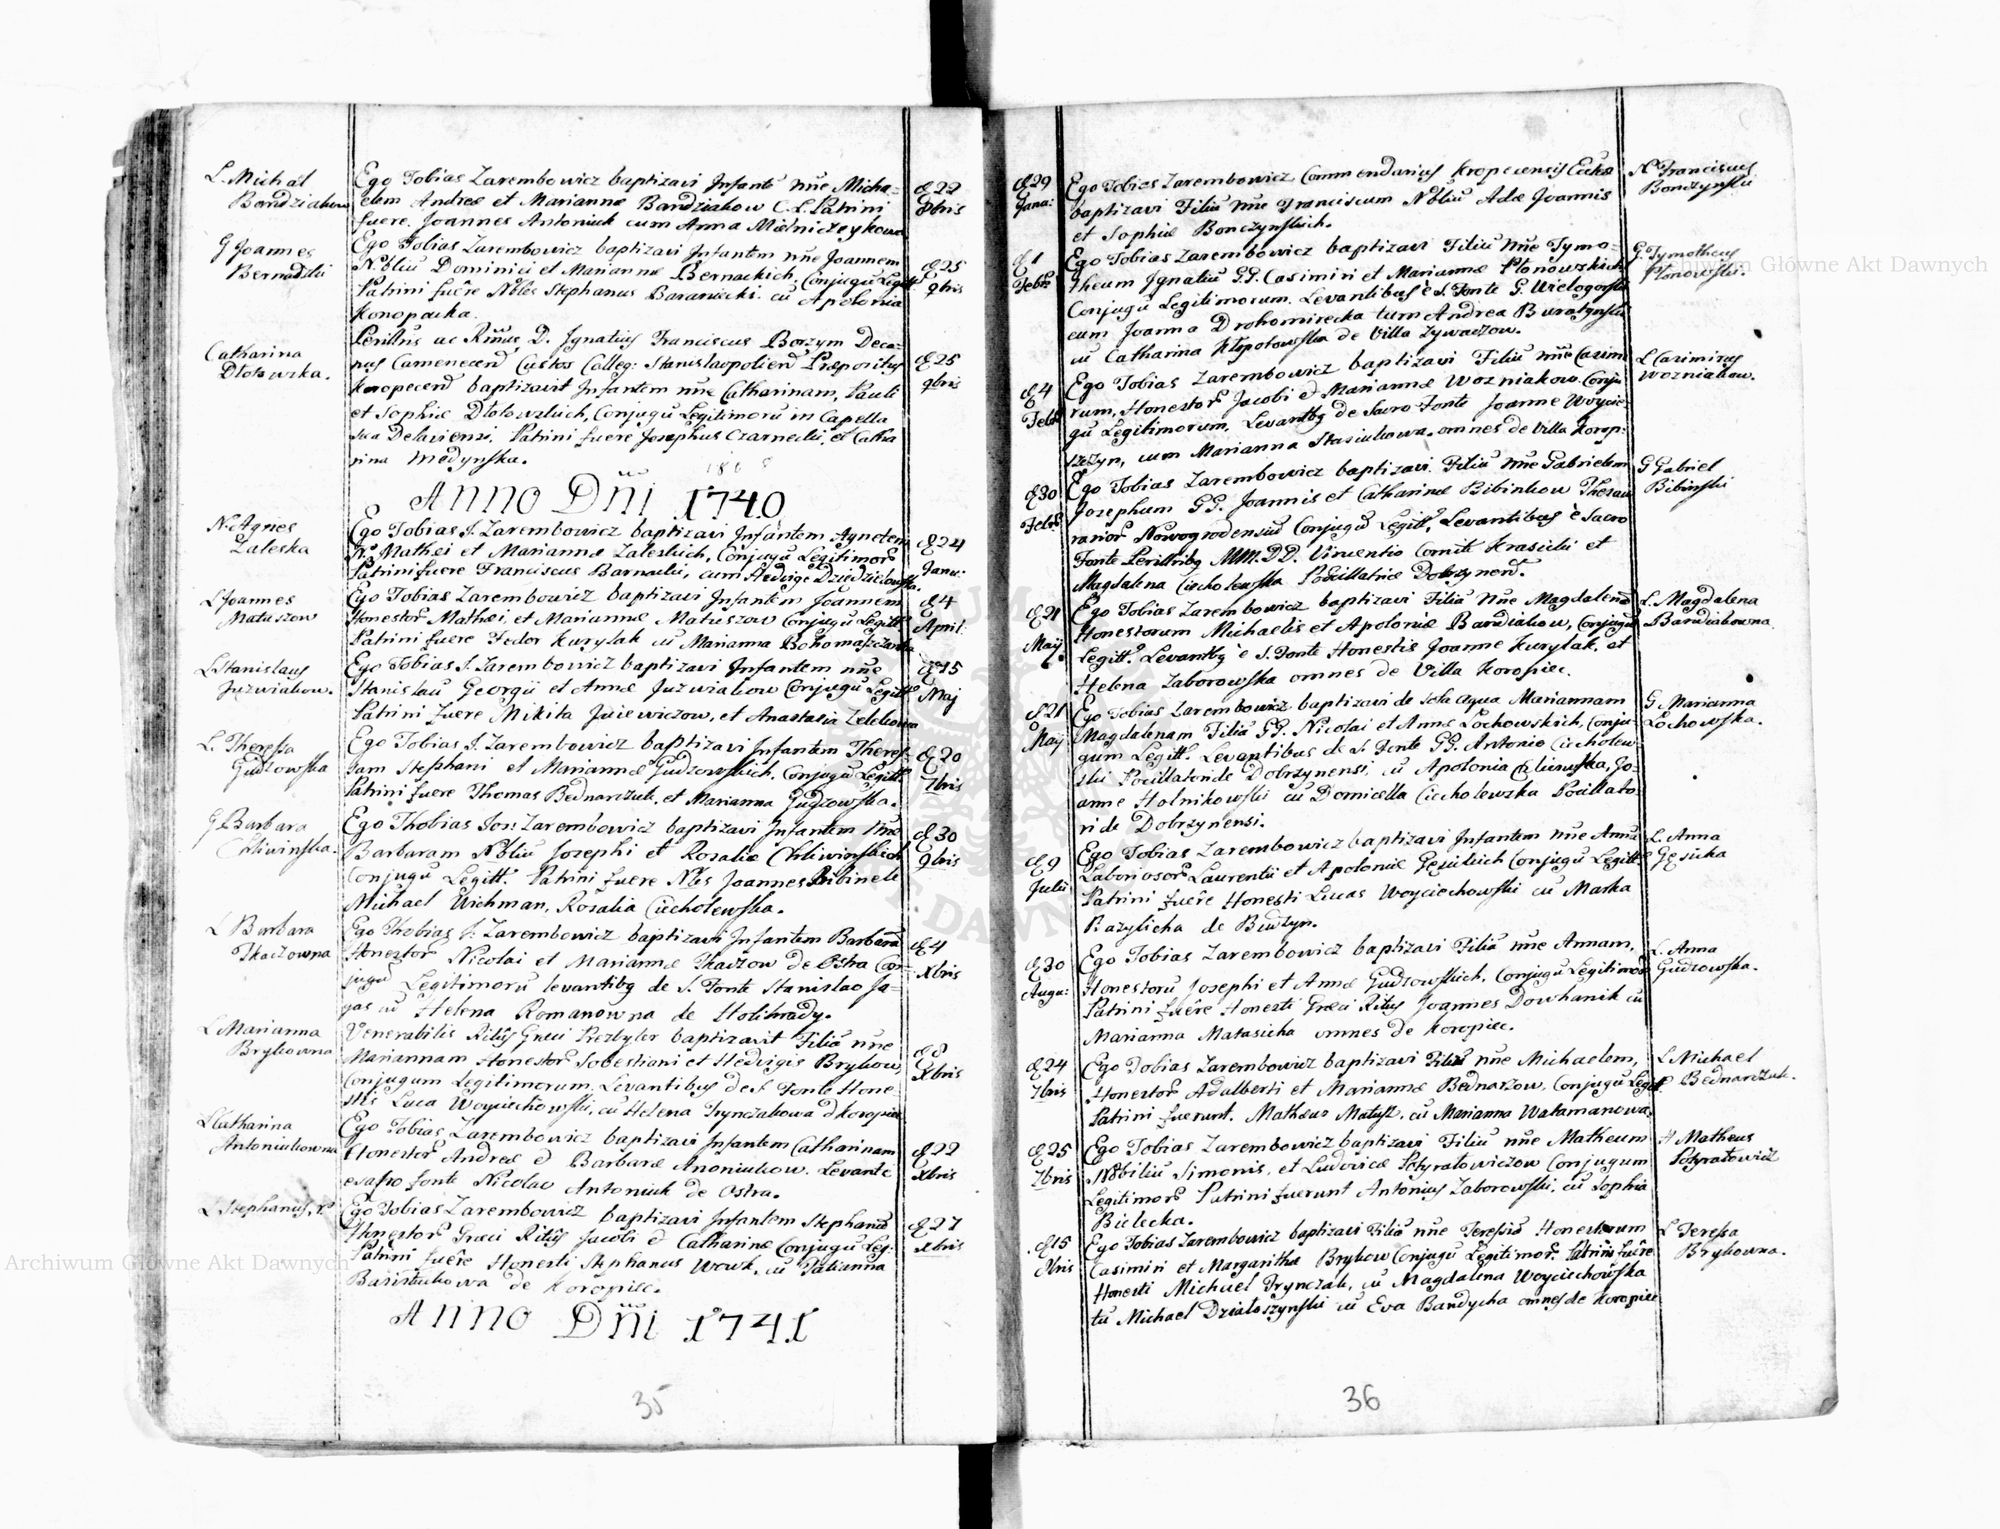 L. Michał
Bandziakow
Ego Tobias Zarembowicz baptizavi Infantē nñe Micha-
elem Andreæ et Mariannæ Bandziakow C. L. Patrini
fuere, Joannes Antoniuk cum Anna Mielniczeykowa
d 22
8bris
G Joannes
Bernadzki
Ego Tobias Zarembowicz baptizavi Infantem nñe Joannem
Nobliū Dominici et Mariannæ Bernackich, Conjugū Legitt
Patrini fuêre Nobles Stephanus Baraniecki cū Apolonia
Konopacka.
d 25
9bris
Catharina
Dłotowska.
Perillris ac Rñus D. Ignatius Franciscus Borzym Deca-
nus Camenecen Custos Colleg: Stanislaopolien Præpositus
Koropecen baptizavit Infantem nñe Catharinam, Pauli
et Sophiæ Dłotowskich, Conjugū Legitimorū in Capella
sua Delaviensi. Patrini fuere Josephus Czarnecki, et Catha
rina Medynska.
d 25
9bris
Anno Dñi 1740
N. Agnes
Zaleska
Ego Tobias J. Zarembowicz baptizavi Infantem Agnetem
N. Mathei et Mariannæ Zaleskich, Conjugū Legitimor
Patrini fuere Franciscus Barnacki, cum Hedvige Dziedzielowska.
d 24
Janu:
L Joannes
Matuszow
Ego Tobias Zarembowicz baptizavi Infantem Joannem
Honestor Mathei, et Mariannæ Matuszow Conjugū Legitt
Patrini fuere Fedor Kurylak cū Marianna
d 4
April:
L Stanislaus
Juzwiakow.
Ego Tobias J. Zarembowicz baptizavi Infantem nñe
Stanislaū Georgii et Annæ Juzwiakow Conjugū Legitt
Patrini fuere Mikita Juiewiczow, et Anastasia
d 15
Maj
L. Theressa
Gudzowska
Ego Tobias J. Zarembowicz baptizavi Infantem Theres-
sam Stephani et Mariannæ Gudzowskich, Conjugū Legitt
Patrini fuere Thomas Bednarczuk, et Marianna Gudzowska.
d 20
7bris
G Barbara
Chliwinska.
Ego Thobias Jos: Zarembowicz baptizavi Infantem nñe
Barbaram Nobliū Josephi et Rosaliæ Chliwinskich
Conjugū Legitt. Patrini fuere Nobles Joannes Bibinek
Michael Wichman, Rosalia Ciecholewska.
d 30
9bris
L Barbara
Tkaczowna
Ego Thobias J: Zarembowicz baptizavi Infantem Barbarā
Honestor Nicolai et Mariannæ Tkaczow de Ostra Con-
jugū Legitimorū levantibq de S. Fonte Stanislao Ja-
gas cū Helena Romanowna de Holihrady.
d 4
Xbris
L Marianna
Brykowna
Venerabilis Ritūs Græci Prezbyter baptizavit Filiā nñe
Mariannam Honestor Sobestiani et Hedvigis Brykow,
Conjugum Legitimorum. Levantibus de S. Fonte Hone
stis Luca Woyciechowski, cū Helena Trynczakowa d Koropiec
d 8
Xbris
L Catharina
Antoniukowna
Ego Tobias Zarembowicz baptizavi Infantem Catharinam
Honestor Andreæ et Barbaræ Anoniukow. Levante
e sacro fonte Nicolao Antoniuk de Ostra.
d 22
Xbris
L Stephanus,
Ego Tobias Zarembowicz baptizavi Infantem Stephanū
Honestor Græci Ritūs Jacobi et Catharinæ Conjugū Leg:
Patrini fuêre Honesti Stephanus Wowk, cū Tatianna
de Koropiec.
d 27
Xbris
Anno Dñi 1741
35
d 29
Janu:
Ego Tobias Zarembowicz Commendarius Kropecensis Eccles
baptizavi Filiū nñe Franciscum Nobliū Adæ Joannis
et Sophiæ Bonczynskich.
N Franciscus
Bonczynski
d 1
Febr
Ego Tobias Zarembowicz baptizavi Filiū nñe Tymo-
theum Ignatiū GG. Casimiri et Mariannæ Płonowskich
Conjugū Legitimorum. Levantibus è S. Fonte G. Wielogorski
cum Joanna Drohomirecka tum Andrea Buratynski
cū Catharina Kłopotowska de Villa Zywaczow.
G. Tymotheus
Płonowski.
d 4
Febr
Ego Tobias Zarembowicz baptizavi Filiū nñe Casimi
rum, Honestor Jacobi et Mariannæ Wozniakow Conju
gū Legitimorum, Levantbq de Sacro Fonte Joanne Woycie-
szczyn, cum Marianna Stasiukowa. omnes de Villa Korop:
L Casimirus
Wozniakow.
d 30
Febr
Ego Tobias Zarembowicz baptizavi Filiū nñe Gabrielem
Josephum GG. Joannis et Catharinæ Bibinkow Thesau
rarior Nowogrodensiū Conjugū Legitt. Levantibus è Sacro
Fonte Perillribq MM. DD. Vincentio Comite Krasicki et
Magdalena Ciecholewska Pocillatrice Dobrzynen.
G Gabriel
Bibinski
d 21
Maÿ
Ego Tobias Zarembowicz baptizavi Filiū nñe Magdalenā
Honestorum Michaelis et Apoloniæ Bandiakow, Conjugū
Legitt. Levantbq è S. Fonte Honestis Joanne Kurylak, et
Helena Zaborowska omnes de Villa Koropiec.
L. Magdalena
Bandiakowna.
d 21
Maÿ
Ego Tobias Zarembowicz baptizavi de sola aqua Mariannam
Magdalenam Filiā GG. Nicolai et Annæ Łochowskich, Conju
gum Legitt. Levantibus de S. Fonte GG. Antonio Ciecholew-
ski Pocillatoride Dobrzynensi, cū Apolonia Chliewska, Jo-
anne Holnikowski cū Domicella Ciecholewska Pocillato
ride Dobrzynensi.
G Marianna
Łochowska.
d 9
Julii
Ego Tobias Zarembowicz baptizavi Infantem nñe Annā
Laboriosor Laurentii et Apoloniæ Gęsickich Conjugū Legitt.
Patrini fuêre Honesti Lucas Woyciechowski cū Maria
Bazylicha de
L. Anna
Gęsicka
d 30
Augu:
Ego Tobias Zarembowicz baptizavi Filiā nñe Annam,
Honestorū Josephi et Annæ Gudzowskich, Conjugū Legitimor
Patrini fuêre Honesti Græci Ritūs Joannes Dowhanik cū
Marianna Matasicha omnes de Koropiec.
L. Anna
Gudzowska.
d 24
7bris
Ego Tobias Zarembowicz baptizavi Filiū nñe Michaelem,
Honestor Adalberti et Mariannæ Bednarzow, Conjugū Legitt
Patrini fuerunt. Matheus Matysz, cū Marianna Watamanowa.
L Michael
Bednarczuk.
d 25
7bris
Ego Tobias Zarembowicz baptizavi Filiū nñe Matheum
Nobiliū Simonis, et Ludovicæ Potyratowiczow Conjugum
Legitimor Patrini fuerunt Antonius Zaborowski, cū Sophia
Bielecka.
N Matheus
Potyratowicz
d 15
8bris
Ego Tobias Zarembowicz baptizavi Filiā nñe Teressiā Honestorum
Casimiri et Margarithæ Brykow Conjugū Legitimor. Patrini fuêre
Honesti Michael Trynczak, cū Magdalena Woyciechowska
tū Michael Działoszynski cū Eva Bandycha omnes de Koropiec
L Teressa
Brykowna.
36
Archiwum Główne Akt Dawnych
Archiwum Główne Akt Dawnych